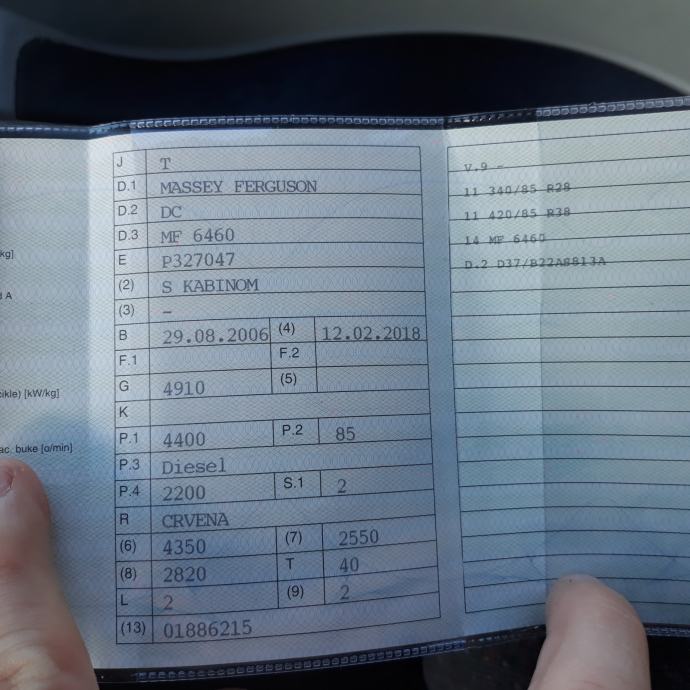 kg]
d A
cikle) [kW/kg]
ac. buke [o/min]
J T
D.1 MASSEY FERGUSON
D.2 DC
D.3 MF 6460
E P327047
(2) S KABINOM
(3) –
B 29.08.2006 (4) 12.02.2018
F.1 F.2
G 4910 (5)
K
P.1 4400 P.2 85
P.3 Diesel
P.4 2200 S.1 2
R CRVENA
(6) 4350 (7) 2550
(8) 2820 T 40
L 2 (9) 2
(13) 01886215
V.9 -
11 340/85 R28
11 420/85 R38
14 MF 6460
D.2 D37/B22A8813A